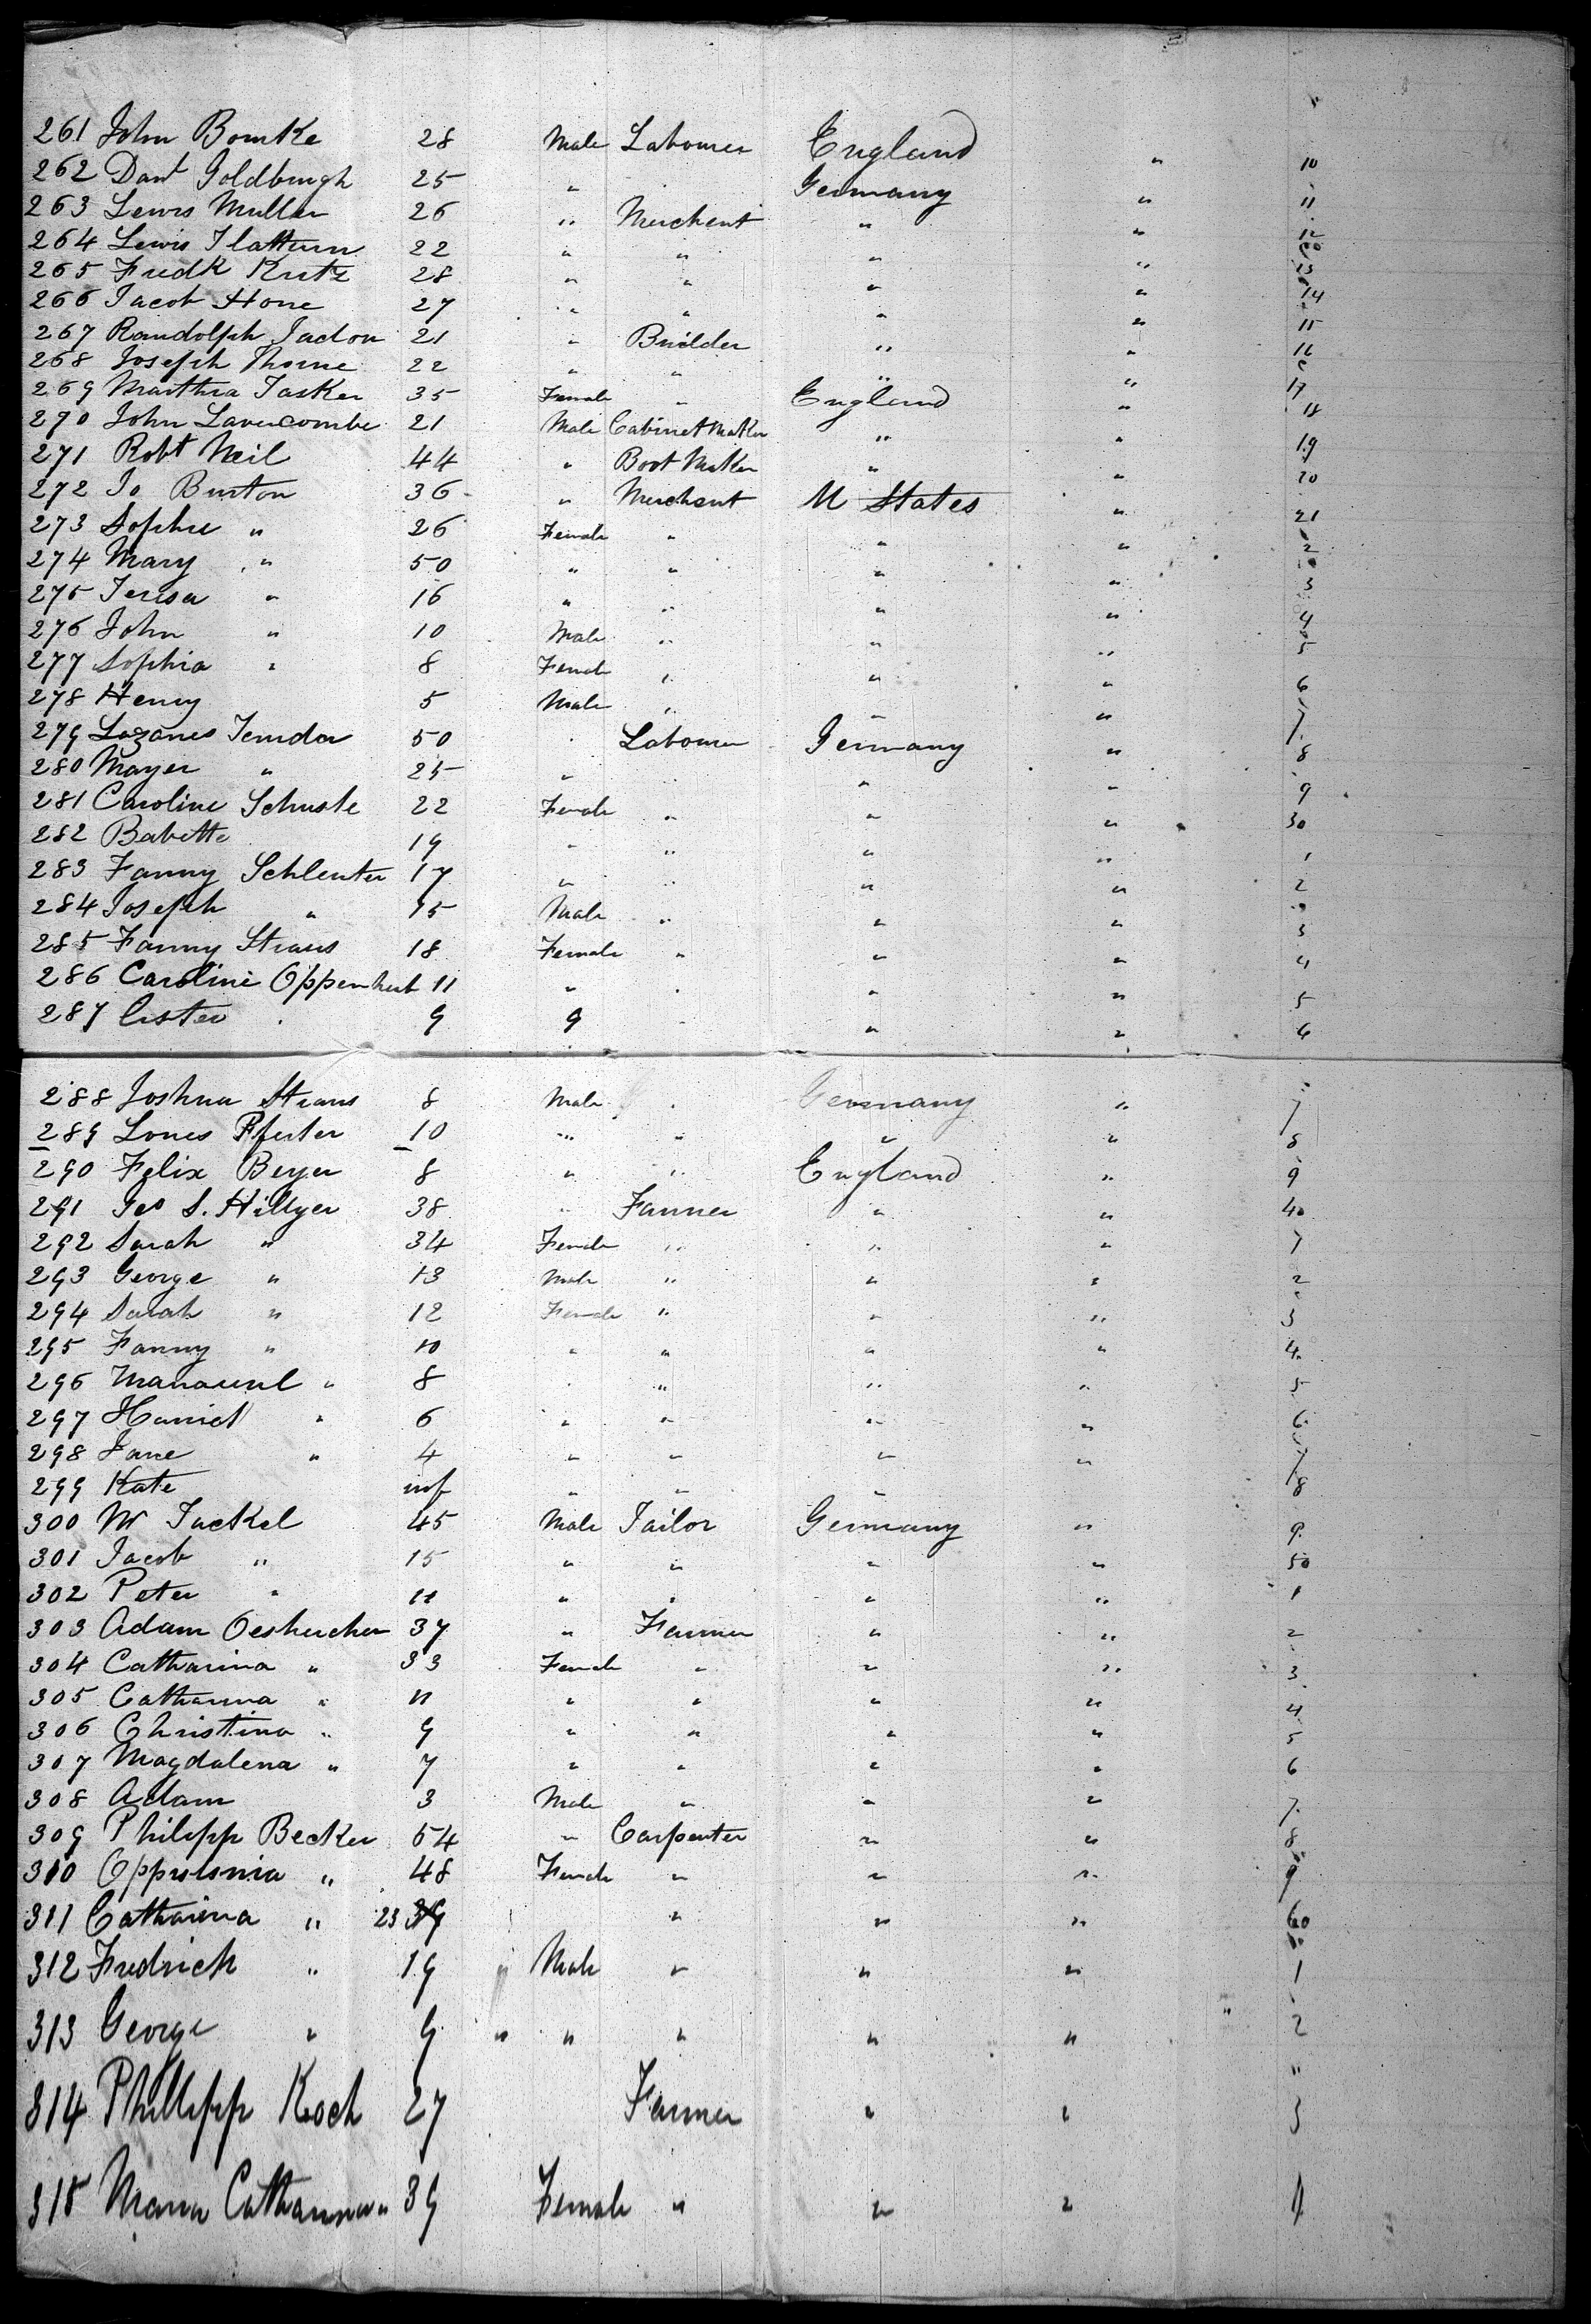 261 John Bourke 28 Male Labourer England " 10
262 Danl Goldburgh 25 " " Germany " 11
263 Lewis Muller 26 " Merchent " " 12
264 Lewis Flatturn 22 " " " "
265 Fredk Kutz 28 " " " " 13
266 Jacob Hone 27 " " " " 14
267 Randolph Jadon 21 " Builder " " 15
268 Joseph Thorne 22 " " " " 16
269 Marthra Tasker 35 Female " England " 17
270 John Lavercombe 21 Male Cabinet Maker " " 18
271 Robt Neil 44 " Boot Maker " " 19
272 Jo Burton 36 " Merchent U States " 20
273 Sophie " 26 Female " " " 21
274 Mary " 50 " " " " 2
275 Teresa " 16 " " " " 3
276 John " 10 Male " " " 4
277 Sophia " 8 Female " " " 5
278 Henry 5 Male " " " 6
279 Lazones Temdor 50 Labourer Germany " 7
280 Mayer " 25 " " " " 8
281 Caroline Schuste 22 Female " " " 9
282 Babette 19 " " " " 30
283 Fanny Schlenter 17 " " " " 1
284 Joseph " 15 Male " " " 2
285 Fanny Straus 18 Female " " " 3
286 Caroline Oppenheit 11 " " " " 4
287 Cister " 9 9 " " " 5
6
288 Joshua Straus 8 Male " Germany " 7
289 Lones Pfester 10 " " " " 8
290 Felix Beyer 8 " " England " 9
291 Geo S. Hillyer 38 " Farmer " " 40
292 Sarah " 34 Female " " " 1
293 George " 13 Male " " " 2
294 Sarah " 12 Female " " " 3
295 Fanny " 10 " " " " 4
296 " 8 " " " " 5
297 Harriet " 6 " " " " 6
298 Jane " 4 " " " " 7
299 Kate inf " " " 8
300 W Jackel 45 Male Tailor Germany " 9
301 Jacob " 15 " " " " 50
302 Peter " 11 " " " " 1
303 Adam Oesheicher 37 " Farmer " " 2
304 Catharina " 33 Female " " " 3
305 Catharina " 11 " " " " 4
306 Christina " 9 " " " " 5
307 Magdalena " 7 " " " " 6
308 Adam 3 Male " " " 7
309 Philipp Becker 54 " Carpenter " " 8
310 " 48 Female " " " 9
311 Catharina " 23 39 " " " 60
312 Fredrich " 19 " Male " " " 1
313 George " 9 " " " " " " 2
314 Phillipp Koch 27 Farmer " " " 3
315 Maria Catharina " 39 Female " " " 4